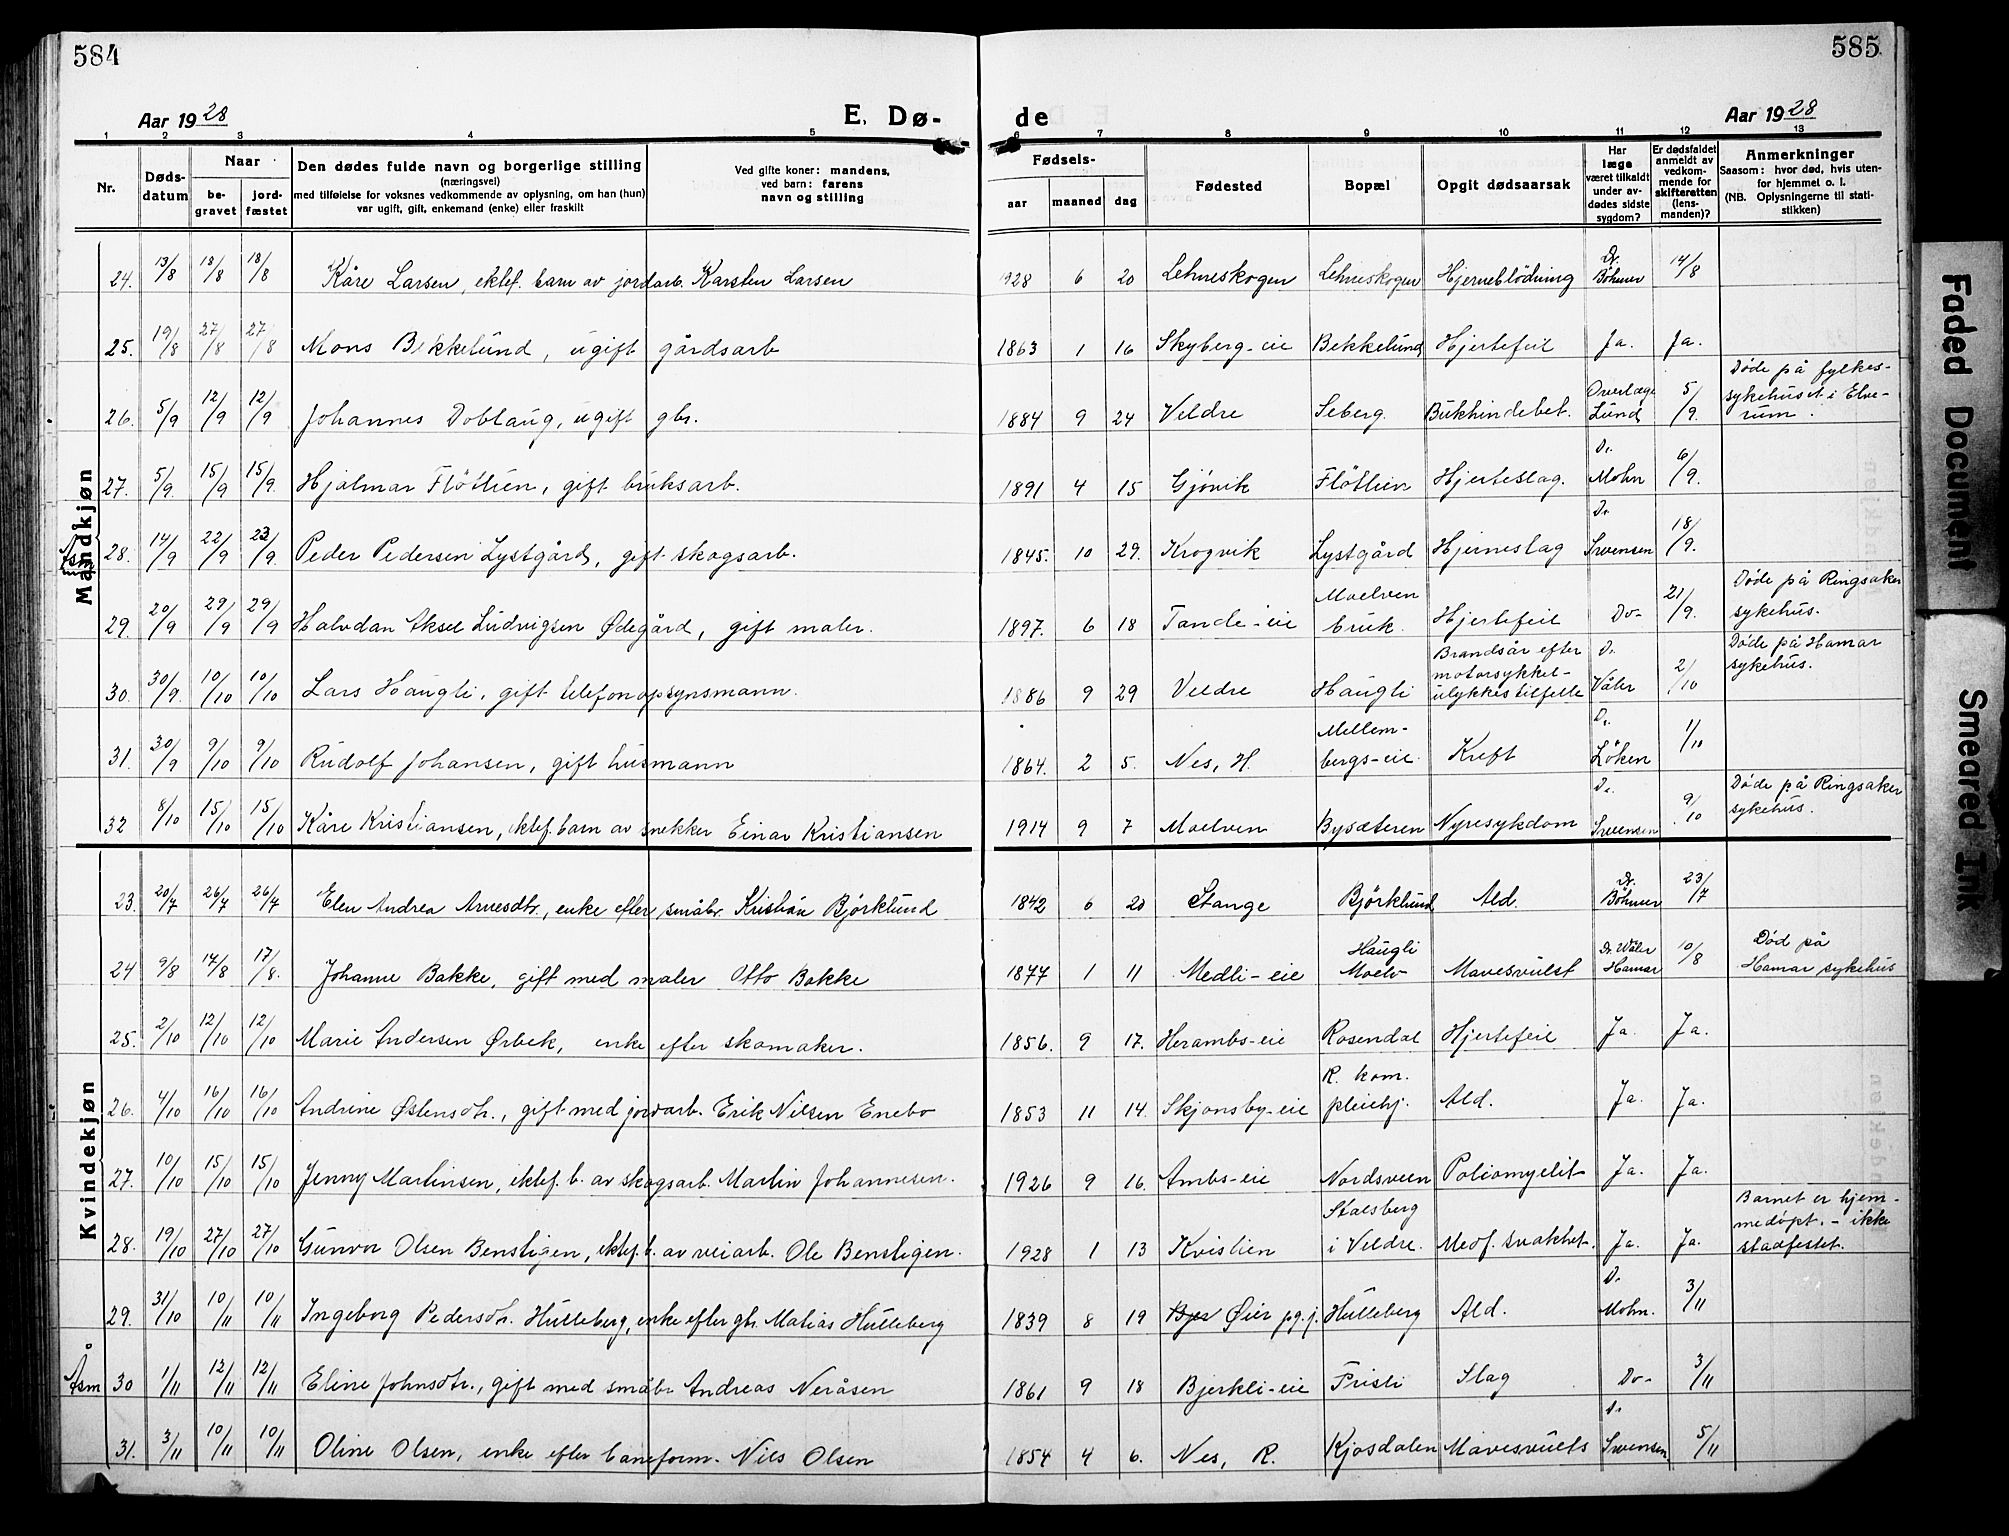 584
585
Aar 1928
E. Dø-
de
Aar 1928
1 2 3 4 5 6 7 8 9 10 11 12 13
Nr.
Døds-
datum
Naar
be-
gravet
jord-
fæstet
Den dødes fulde navn og borgerlige stilling
(næringsvei)
med tilføielse for voksnes vedkommende av oplysning, om han (hun)
var ugift, gift, enkemand (enke) eller fraskilt
Ved gifte koner: mandens,
ved barn: farens
navn og stilling
Fødsels-
aar
maaned
dag
Fødested
Bopæl
Opgit dødsaarsak
Har
læge
været tilkaldt
under av-
dødes sidste
sygdom?
Er dødsfaldet
anmeldt av
vedkom-
mende for
skifteretten
(lens-
manden)?
Anmerkninger
Saasom: hvor død, hvis uten-
for hjemmet o. l.
(NB. Oplysningerne til stati-
stikken)
Mandkjøn
24. 13/8 18/8 18/8 Kåre Larsen, ektef. barn av jordarb. Karsten Larsen 1928 6 20 Lehneskogen Lehneskogen Hjerneblödning Dr. Böhmer 14/8
25. 19/8 27/8 27/8 Mons Bekkelund, ugift gårdsarb 1863 1 16 Skyberg-eie Bekkelund Hjertefeil Ja. Ja.
26. 5/9 12/9 12/9 Johannes Doblaug, ugift gbr. 1884 9 24 Veldre Seberg. Bukhindebet. Overlæge Lund 5/9. Döde på fylkes-
sykehuset i Elve-
rum.
27. 5/9. 15/9 15/9. Hjalmar Fløtlien, gift bruksarb. 1891 4 15 Gjövik Fløtlien Hjerteslag. Dr Mohn 6/9.
28. 14/9 22/9 23/9. Peder Pedersen Lystgård, gift skogsarb. 1845. 10 29. Krogvik Lystgård Hjerneslag Dr Svensen 18/9.
29. 20/9 29/9 29/9 Halvdan Aksel Ludvigsen Ødegård, gift maler. 1897. 6 18 Tande-eie Moelven bruk. Hjertefeil Do- 21/9. Döde på Ringsaker
sykehus.
30. 30/9. 10/10 10/10 Lars Haugli, gift telefonopsynsmann. 1886 9 29 Veldre Haugli Brandsår efter
motorsykkel-
ulykkestilfelle Dr Våler 2/10 Döde på Hamar
sykehus.
31. 30/9 9/10 9/10 Rudolf Johansen, gift husmann 1864. 2 5. Nes, H. Mellem-
bergs-eie Kreft Dr. Löken 1/10
32 8/10 15/10 15/10 Kåre Kristiansen, ektef. barn av snekker Einar Kristiansen 1914 9 7 Moelven Bysæteren Nyresykdom Dr. Svensen 9/10 Döde på Ringsaker
sykehus.
Kvindekjøn
23. 20/7 26/7 26/7 Elen Andrea Arnesdtr., enke efter småbr. Kristian Björklund 1842 6 20 Stange Björklund Ald. Dr. Böhmer 23/7
24 9/8 17/8 17/8. Johanne Bakke, gift med maler Otto Bakke 1877 1 11 Medli-eie Haugli
Moelv Mavesvulst Dr. Våler
Hamar 10/8 Död på
Hamar sykehus
25. 2/10 12/10 12/10 Marie Andersen Ørbek, enke efter skomaker. 1856. 9 17. Herambs-eie Rosendal Hjertefeil Ja. Ja.
26. 4/10 16/10 16/10 Andrine Østensdtr., gift med jordarb. Erik Nilsen Enebo 1853 11 14. Skjonsby-eie R. kom.
pleiehj. Ald. Ja. Ja.
27. 10/10 15/10 15/10 Jenny Martinsen, ektef. b. av skogsarb. Martin Johannesen. 1926 9 16. Ambs-eie Nordsveen Poliomyelit Ja. Ja.
28. 19/10 27/10 27/10 Gunvor Olsen Benstigen, ektef. b. av veiarb. Ole Benstigen. 1928 1 13 Kvislien Stalsberg
i Veldre. Medf. svakhet. Ja. Ja. Barnet er hjem-
medöpt. - ikke
stadfestet.
29. 31/10 10/11 10/11 Ingeborg Pedersdtr. Hulleberg, enke efter gbr. Matias Hulleberg 1839 8 19 Øier pg.j. Hulleberg Ald. Dr Mohn. 3/11
Åsm 30 1/11 12/11 12/11 Eline Johnsdtr., gift med småbr Andreas Neråsen 1861 9 18 Bjerkli-eie Fristi Slag Do- 3/11
31. 3/11 10/11 10/11 Oline Olsen, enke efter baneform. Nils Olsen 1854 4 6. Nes, R. Kjosdalen Mavesvulst Dr Svensen 5/11
Faded Document
Smeared Ink